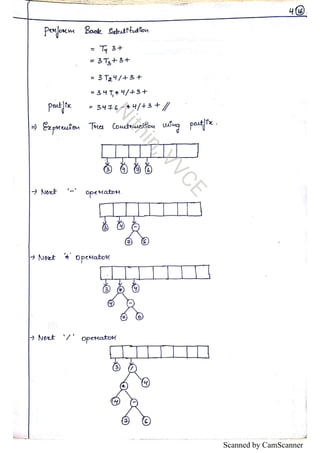 4
perform Back Substitution
= T4 3+
= 3T3+3+
= 3T24/+3+
= 34T1*4/+3+
postfix = 3416-*4/+3+//
=> Expression Tree Construction using postfix.
3 4
→ Next '-' operator
3 4 -
6
→ Next '*' operator
3 * 4
4 -
6
→ Next '/' operator
3 /
* 4
4 -
6
Nithin, VVCE
Scanned by CamScanner